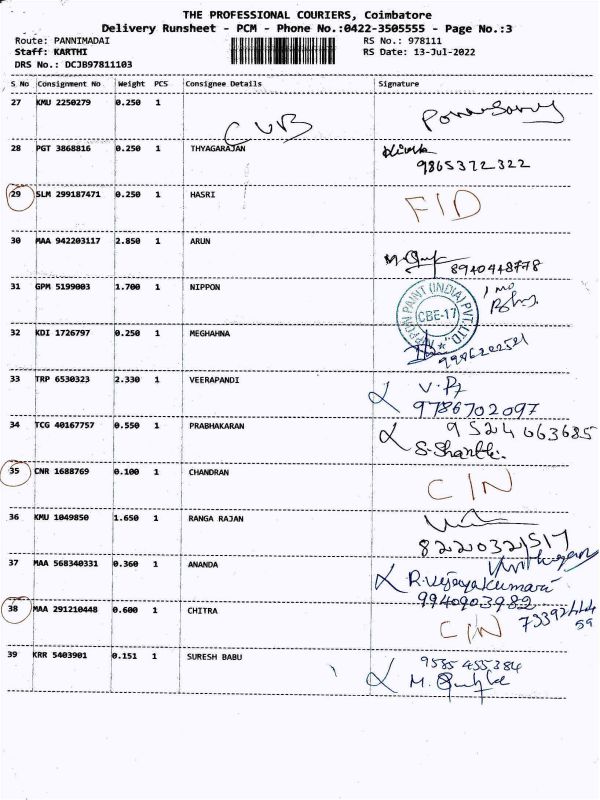 THE PROFESSIONAL COURIERS, Coimbatore
Delivery Runsheet - PCM - Phone No.:0422-3505555 - Page No.:3
Route: PANNIMADAI RS No.: 978111
Staff: KARTHI RS Date: 13-Jul-2022
DRS No.: DCJB97811103
S No Consignment No Weight PCS Consignee Details Signature
27 KMU 2250279 0.250 1
CUB
28 PGT 3868816 0.250 1 THYAGARAJAN
9865372322
29 SLM 299187471 0.250 1 HASRI FID
30 MAA 942203117 2.850 1 ARUN
8940448778
31 GPM 5199003 1.700 1 NIPPON
NIPPON PAINT (INDIA) PVT. LTD. CBE-17
32 KDI 1726797 0.250 1 MEGHAHNA
33 TRP 6530323 2.330 1 VEERAPANDI
9786702097
34 TCG 40167757 0.550 1 PRABHAKARAN 9524063685
S. Shanthi
35 CNR 1688769 0.100 1 CHANDRAN C/N
36 KMU 1049850 1.650 1 RANGA RAJAN
37 MAA 568340331 0.360 1 ANANDA
R. Vijayakumara
9940903982
38 MAA 291210448 0.600 1 CHITRA C/N
39 KRR 5403901 0.151 1 SURESH BABU 9585455384